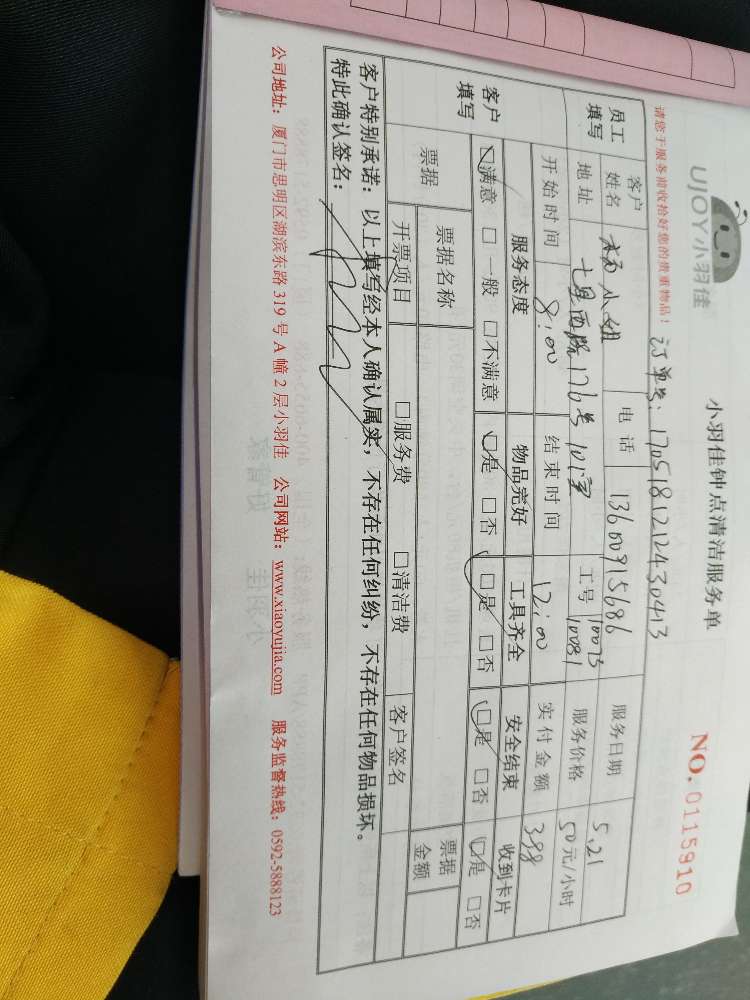 UJOY小羽佳
小羽佳钟点清洁服务单
NO. 0115910
请您于服务前收拾好您的贵重物品！
订单号：1705181212430413
员工填写
客户姓名 杨小姐 电话 13600915686 服务日期 5.21
地址 七星西路176号101室 工号 10073 10081 服务价格 50元/小时
开始时间 8:00 结束时间 12:00 实付金额 398
客户填写
服务态度 物品完好 工具齐全 安全结束 收到卡片
☑满意 □一般 □不满意 ☑是 □否 ☑是 □否 ☑是 □否 ☑是 □否
票据 票据名称 票据金额
开票项目 □服务费 □清洁费 客户签名
客户特别承诺：以上填写经本人确认属实，不存在任何纠纷，不存在任何物品损坏。
特此确认签名：
公司地址：厦门市思明区湖滨东路 319 号 A 幢 2 层小羽佳 公司网站：www.xiaoyujia.com 服务监督热线：0592-5888123